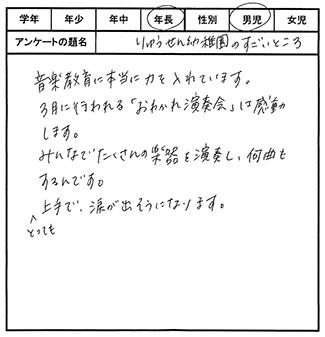 学年 年少 年中 年長 性別 男児 女児
アンケートの題名 りゅうせん幼稚園のすごいところ
音楽教育に本当に力を入れています。
3月に行われる「おわかれ演奏会」は感動
します。
みんなでたくさんの楽器を演奏し、何曲も
するんです。
とっても上手で、涙が出そうになります。